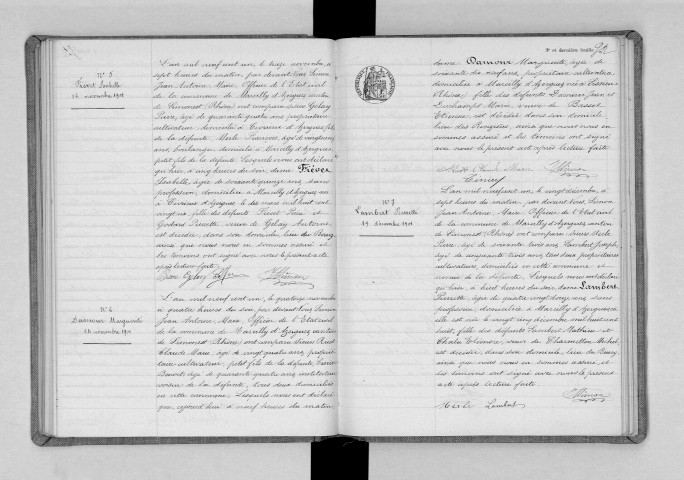 N° 5
Frévet Isabelle
12 novembre 1901
L'an mil neuf cent un, le treize novembre, à
sept heures du matin, par devant nous, Simon
Jean Antoine, Maire, Officier de l'Etat civil
de la commune de Marcilly d'Azergues, canton
de Limonest (Rhône) ont comparu sieurs Gelay
Pierre, âgé de quarante quatre ans, propriétaire
cultivateur, domicilié à Civrieux d'Azergues, fils
de la défunte, Merle Francois, âgé de vingt
ans, boulanger, domicilié à Marcilly d'Azergues,
petit fils de la défunte. Lesquels nous ont déclaré
qu'hier, à cinq heures du soir, dame Frévet
Isabelle, âgée de soixante quinze ans, sans
profession, domiciliée à Marcilly d'Azergues, née
à Civrieux d'Azergues, le dix mars mil huit cent
vingt six, fille des défunts Frévet
et
Pierrette, veuve de Gelay Antoine,
est décédée, dans son domicile, lieu du Bourg,
ainsi que nous nous en sommes assuré et
les témoins ont signé avec nous le présent acte
après lecture faite.
Gelay
Simon
N° 6
Damour Marguerite
14 novembre 1901
L'an mil neuf cent un, le quatorze novembre
à quatre heures du soir, par devant nous, Simon
Jean Antoine, Maire, Officier de l'Etat civil
de la commune de Marcilly d'Azergues, canton
de Limonest (Rhône) ont comparu sieurs
Claude Marie, âgé de vingt quatre ans, propriétaire
cultivateur, petit fils de la défunte,
Benoit, âgé de quarante quatre ans, instituteur,
voisin de la défunte, tous deux domiciliés
en cette commune. Lesquels nous ont déclaré
que, aujourd'hui, à neuf heures du matin
9e et dernière feuille
dame Damour Marguerite, âgée de
soixante dix neuf ans, propriétaire cultivatrice,
domiciliée à Marcilly d'Azergues, née à
Rhône, fille des défunts Damour Jean et
Duchampt Marie, veuve de Basset
Etienne, est décédée dans son domicile,
lieu des Bruyères, ainsi que nous nous en
sommes assuré et les témoins ont signé
avec nous le présent acte après lecture faite.
Claude Marie
Simon
N° 7
Lambert Pierrette
19 décembre 1901
L'an mil neuf cent un, le vingt décembre, à
sept heures du matin, par devant nous, Simon
Jean Antoine, Maire, Officier de l'Etat civil
de la commune de Marcilly d'Azergues, canton
de Limonest (Rhône) ont comparu sieurs Merle
Pierre, âgé de soixante trois ans, Lambert Joseph,
âgé de cinquante trois ans, tous deux propriétaires
cultivateurs, domiciliés en cette commune, et
voisins de la défunte. Lesquels nous ont déclaré
qu'hier, à huit heures du soir, dame Lambert
Pierrette, âgée de quatre vingt douze ans, sans
profession, domiciliée à Marcilly d'Azergues, où
elle est née le vingt cinq décembre mil huit cent
huit, fille des défunts Lambert Mathieu et
Chalus Etiennette, veuve de Charmillon Michel,
est décédée, dans son domicile, lieu du Bourg
ainsi que nous nous en sommes assuré, et
les témoins ont signé avec nous le présent
acte après lecture faite.
Merle Lambert
Simon